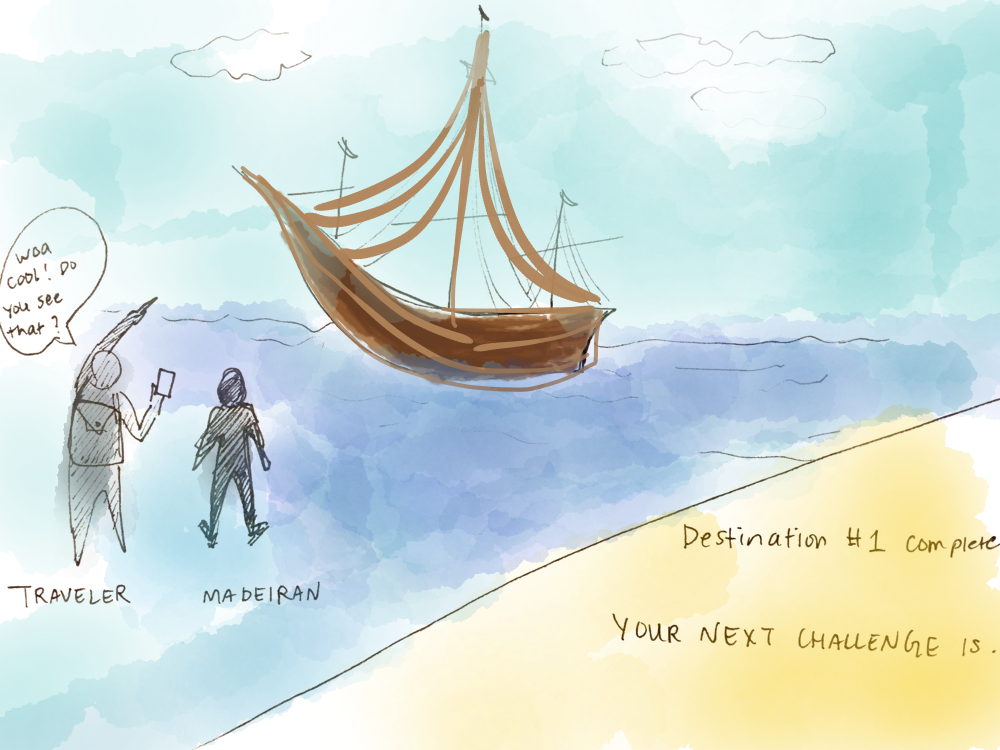 woa
cool! Do
you see
that?
TRAVELER
MADEIRAN
Destination #1 complete
YOUR NEXT CHALLENGE IS.